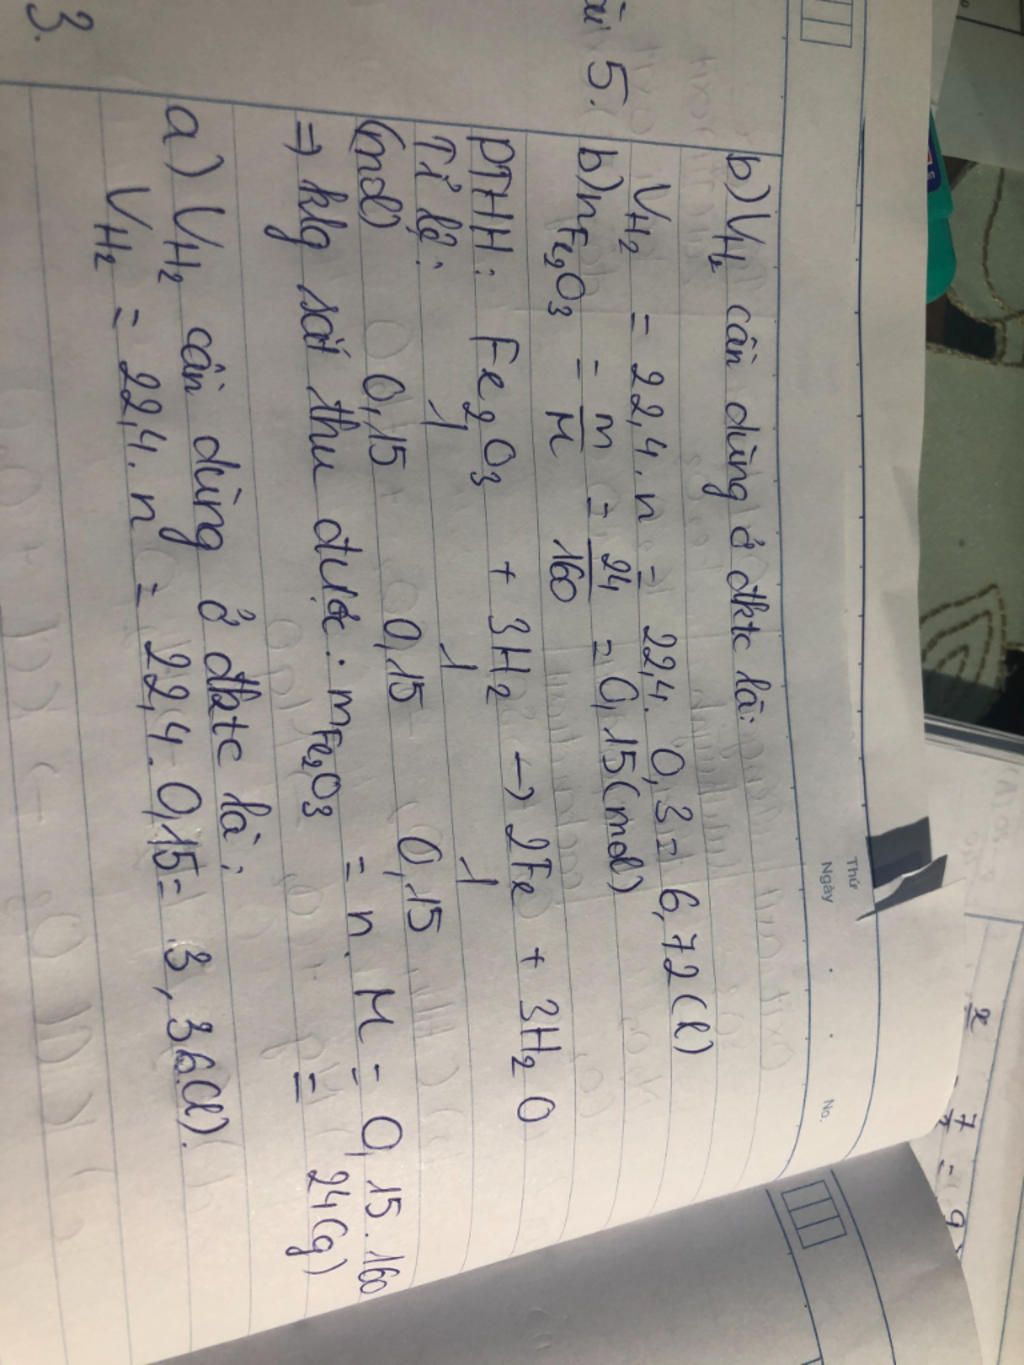 Thứ
Ngày . . No.
b) VH₂ cần dùng ở đktc là:
VH₂ = 22,4. n = 22,4. 0,3 = 6,72(l)
5.
b) nFe₂O₃ = m/M = 24/160 = 0,15(mol)
PTHH: Fe₂O₃ + 3H₂ → 2Fe + 3H₂O
Tỉ lệ: 1 1 1
(mol) 0,15 0,15 0,15
=> klg sắt thu được: mFe₂O₃ = n. M = 0,15.160
= 24(g)
a) VH₂ cần dùng ở đktc là:
VH₂ = 22,4. n = 22,4. 0,15 = 3,36(l).
3.